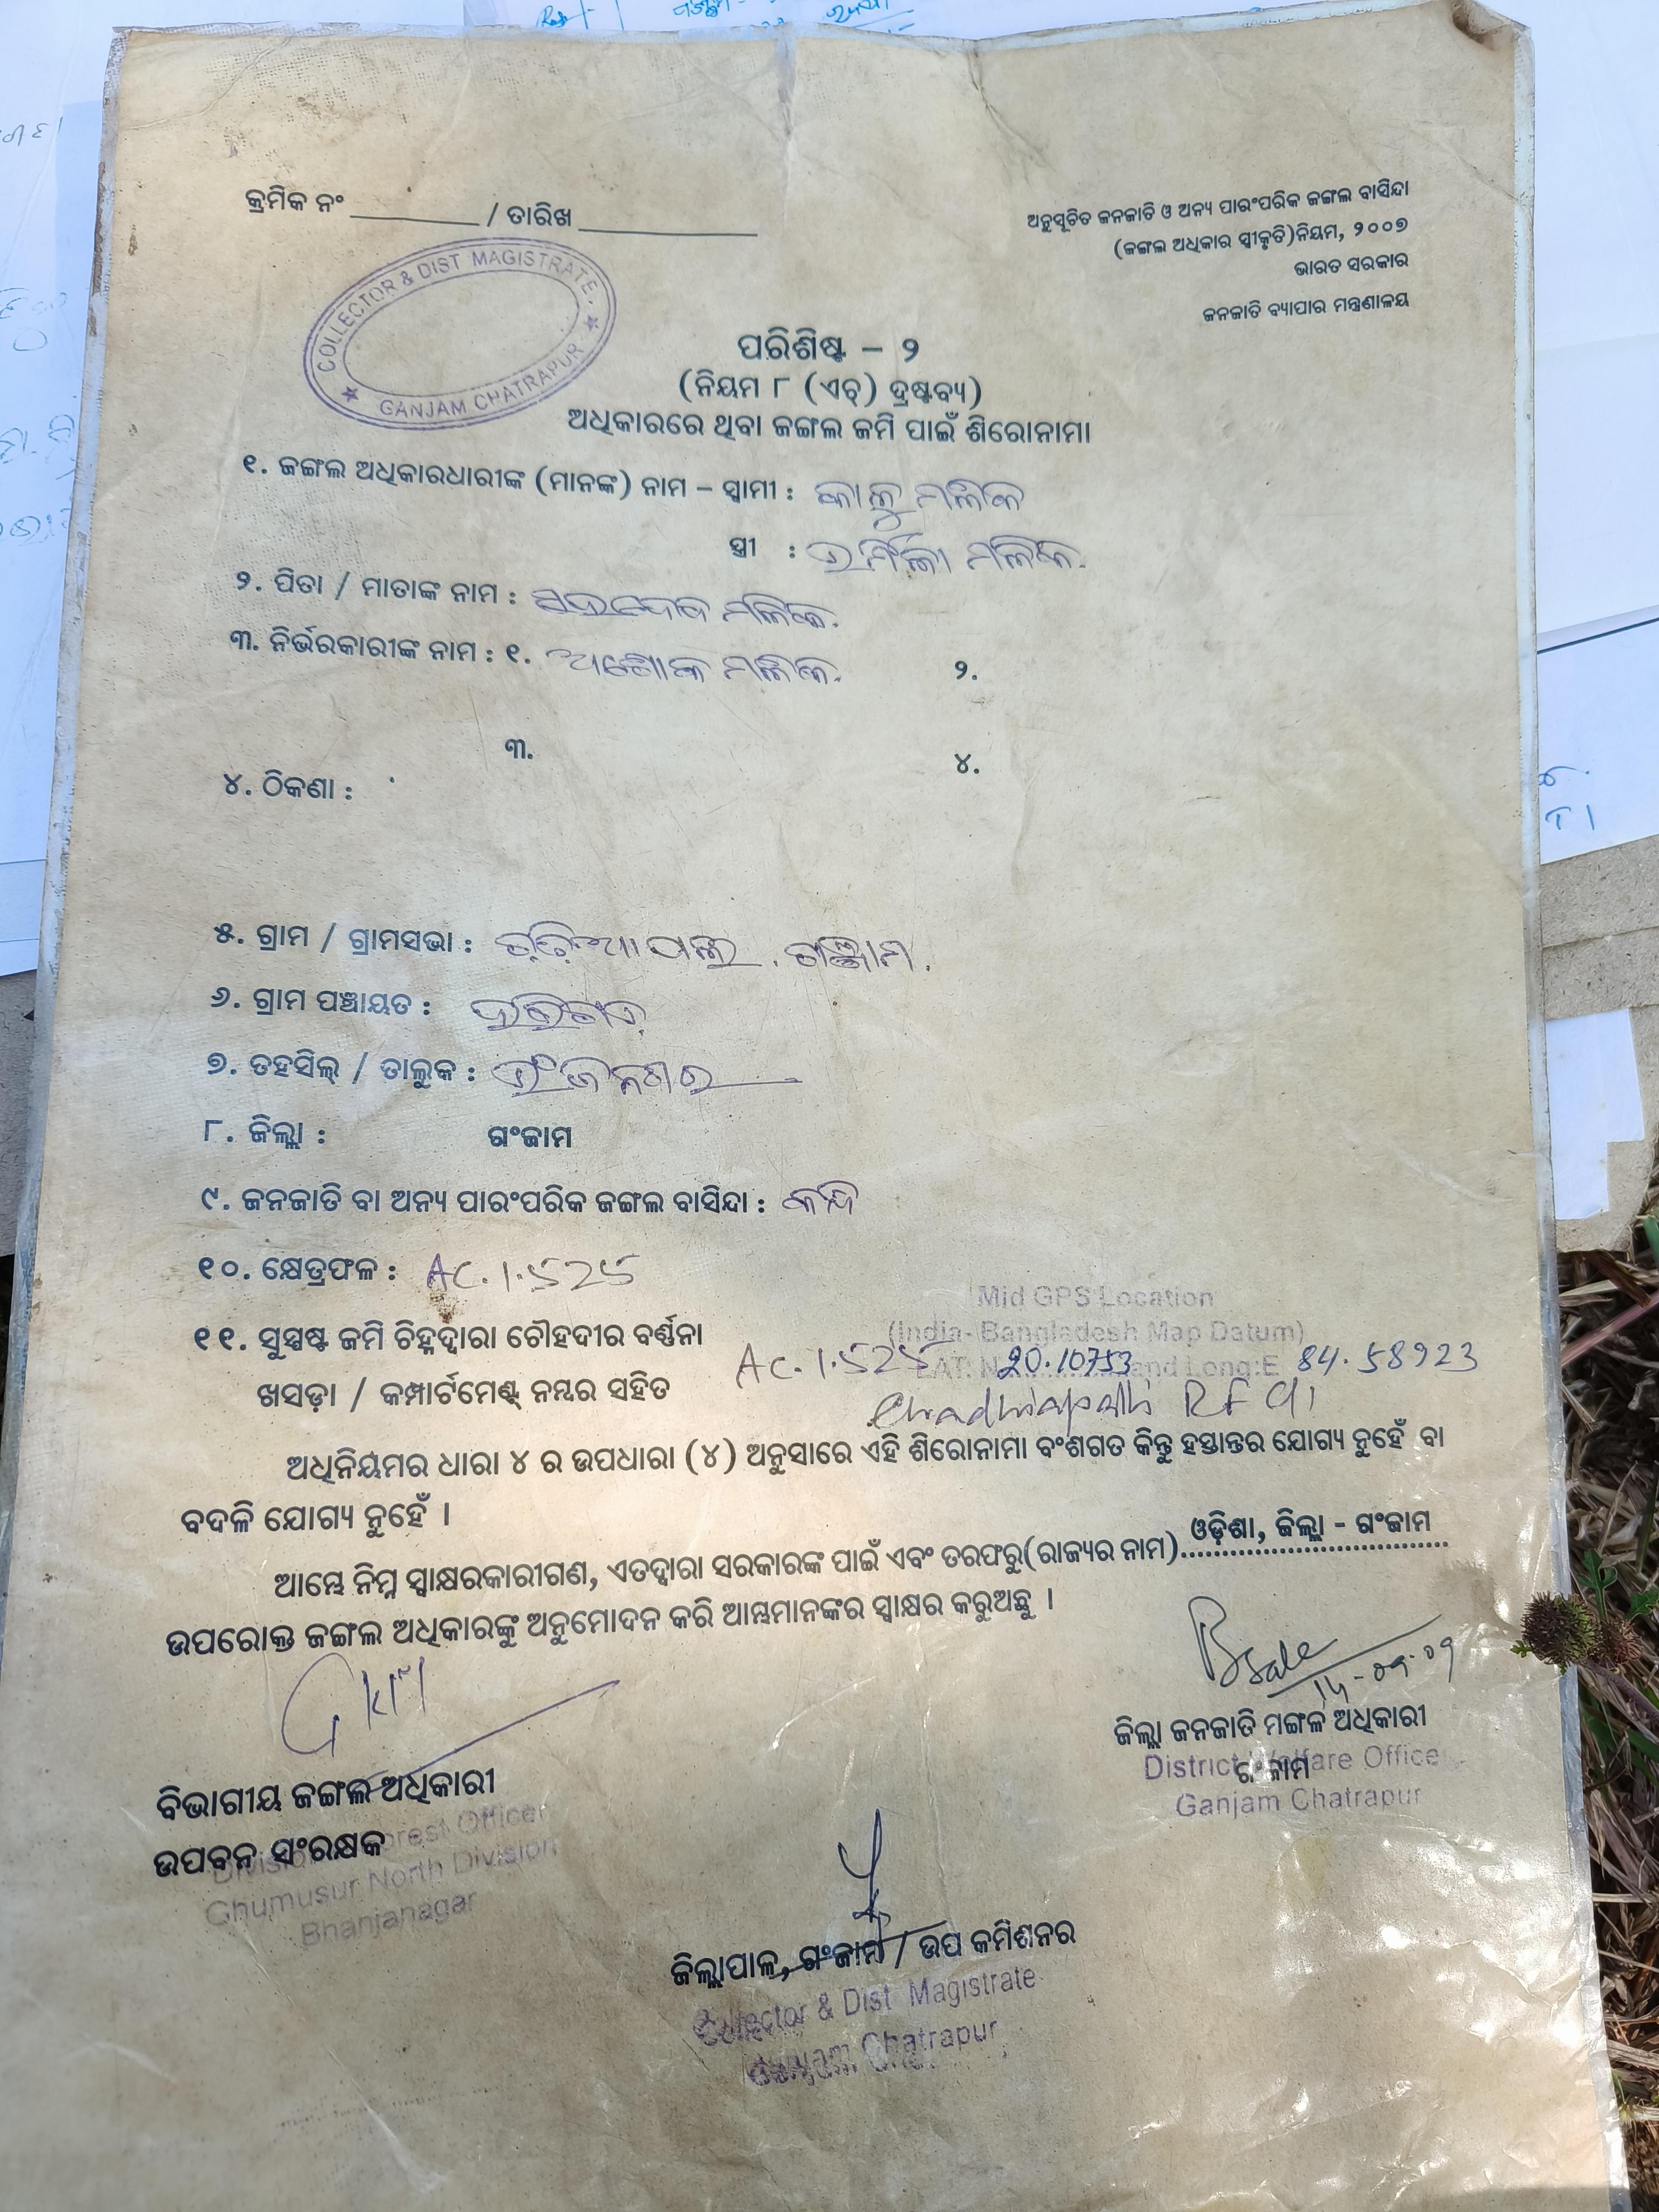 କ୍ରମିକ ନଂ ________ / ତାରିଖ ____________
ଅନୁସୂଚିତ ଜନଜାତି ଓ ଅନ୍ୟ ପାରଂପରିକ ଜଙ୍ଗଲ ବାସିନ୍ଦା
(ଜଙ୍ଗଲ ଅଧିକାର ସ୍ୱୀକୃତି) ନିୟମ, ୨୦୦୭
ଭାରତ ସରକାର
ଜନଜାତି ବ୍ୟାପାର ମନ୍ତ୍ରଣାଳୟ
COLLECTOR & DIST MAGISTRATE.
GANJAM CHATRAPUR
ପରିଶିଷ୍ଟ – ୨
(ନିୟମ ୮ (ଏଚ୍) ଦ୍ରଷ୍ଟବ୍ୟ)
ଅଧିକାରରେ ଥିବା ଜଙ୍ଗଲ ଜମି ପାଇଁ ଶିରୋନାମା
୧. ଜଙ୍ଗଲ ଅଧିକାରଧାରୀଙ୍କ (ମାନଙ୍କ) ନାମ – ସ୍ୱାମୀ : କାଳୁ ମଲିକ
ସ୍ତ୍ରୀ : ଉର୍ମିଳା ମଲିକ.
୨. ପିତା / ମାତାଙ୍କ ନାମ : ମଲିକ.
୩. ନିର୍ଭରକାରୀଙ୍କ ନାମ : ୧. ଅଶୋକ ମଲିକ. ୨.
୩. ୪.
୪. ଠିକଣା :
୫. ଗ୍ରାମ / ଗ୍ରାମସଭା : ଗଞ୍ଜାମ.
୬. ଗ୍ରାମ ପଞ୍ଚାୟତ :
୭. ତହସିଲ୍ / ତାଲୁକ :
୮. ଜିଲ୍ଲା : ଗଂଜାମ
୯. ଜନଜାତି ବା ଅନ୍ୟ ପାରଂପରିକ ଜଙ୍ଗଲ ବାସିନ୍ଦା : କନ୍ଧ
୧୦. କ୍ଷେତ୍ରଫଳ : AC. 1.525
Mid GPS Location
(India- Bangladesh Map Datum)
୧୧. ସୁସ୍ପଷ୍ଟ ଜମି ଚିହ୍ନଦ୍ୱାରା ଚୌହଦୀର ବର୍ଣ୍ଣନା
AC. 1.525 LAT: N 20.10753 and Long:E 84.58923
ଖସଡ଼ା / କମ୍ପାର୍ଟମେଣ୍ଟ୍ ନମ୍ବର ସହିତ RF
ଅଧିନିୟମର ଧାରା ୪ ର ଉପଧାରା (୪) ଅନୁସାରେ ଏହି ଶିରୋନାମା ବଂଶଗତ କିନ୍ତୁ ହସ୍ତାନ୍ତର ଯୋଗ୍ୟ ନୁହେଁ ବା
ବଦଳି ଯୋଗ୍ୟ ନୁହେଁ ।
ଆମ୍ଭେ ନିମ୍ନ ସ୍ୱାକ୍ଷରକାରୀଗଣ, ଏତଦ୍ଵାରା ସରକାରଙ୍କ ପାଇଁ ଏବଂ ତରଫରୁ (ରାଜ୍ୟର ନାମ) ଓଡ଼ିଶା, ଜିଲ୍ଲା - ଗଂଜାମ
ଉପରୋକ୍ତ ଜଙ୍ଗଲ ଅଧିକାରଙ୍କୁ ଅନୁମୋଦନ କରି ଆମ୍ଭମାନଙ୍କର ସ୍ୱାକ୍ଷର କରୁଅଛୁ ।
ଜିଲ୍ଲା ଜନଜାତି ମଙ୍ଗଳ ଅଧିକାରୀ
ଗଂଜାମ
District Welfare Officer
Ganjam Chatrapur
ବିଭାଗୀୟ ଜଙ୍ଗଲ ଅଧିକାରୀ
ଉପବନ ସଂରକ୍ଷକ
Divisional Forest Officer
Ghumusur North Division
Bhanjanagar
ଜିଲ୍ଲାପାଳ, ଗଂଜାମ / ଉପ କମିଶନର
Collector & Dist Magistrate
Ganjam Chatrapur